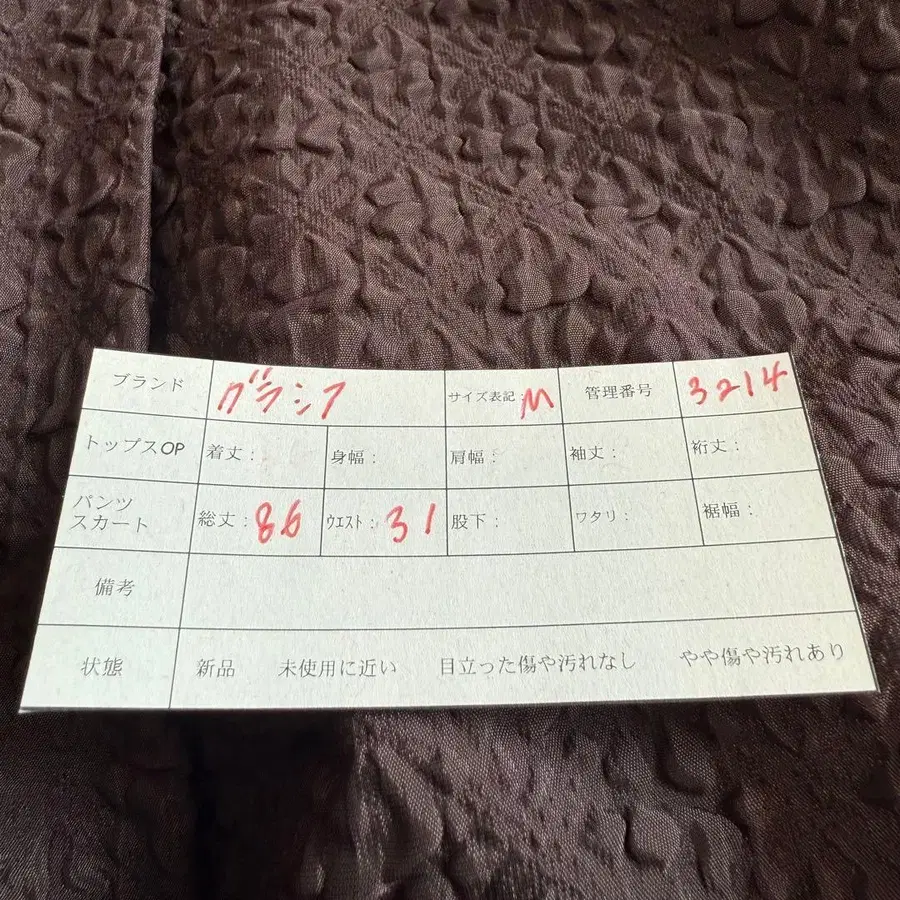 ブランド グラシア サイズ表記: M 管理番号 3214
トップスOP 着丈: 身幅: 肩幅: 袖丈: 裄丈:
パンツ
スカート 総丈: 86 ウエスト: 31 股下: ワタリ: 裾幅:
備考
状態 新品 未使用に近い 目立った傷や汚れなし やや傷や汚れあり